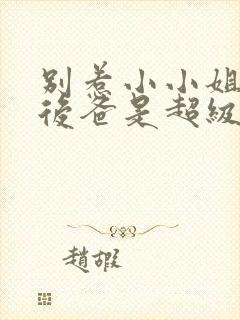 別惹小小姐
後爸是超級
趙嘏